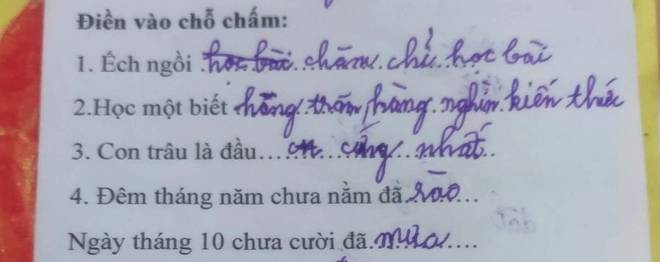 Điền vào chỗ chấm:
1. Ếch ngồi học bài chăm chỉ học bài
2.Học một biết hàng trăm hàng nghìn kiến thức
3. Con trâu là đầu... cứng nhất..
4. Đêm tháng năm chưa nằm đã sào...
Ngày tháng 10 chưa cười đã.mưa....